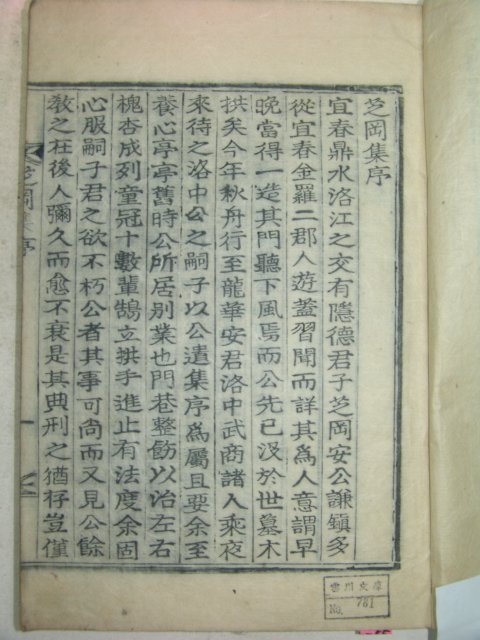 芝岡集序
宜春鼎水洛江之交有隱德君子芝岡安公謙鎭多
從宜春金羅二郡人遊蓋習聞而詳其爲人意謂早
晚當得一造其門聽下風焉而公先已沒於世墓木
拱矣今年秋舟行至龍華安君洛中武商諸人乘夜
來待之洛中公之嗣子以公遺集序爲屬且要余至
養心亭亭舊時公所居別業也門巷整飭以治左右
槐杏成列童冠十數輩鵠立拱手進止有法度余固
心服嗣子君之欲不朽公者其事可尙而又見公餘
敎之在後人彌久而愈不衰是其典刑之猶存豈僅
芝岡集序
雲川文庫
No. 781